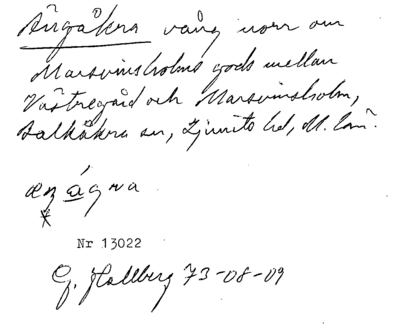 Ängåkra vång norr om
Marsvinsholms gods mellan
Västregård och Marsvinsholm,
Balkåkra sn, Ljunits hd, M. län.
ágra
Nr 13022
G. Hallberg 73-08-09